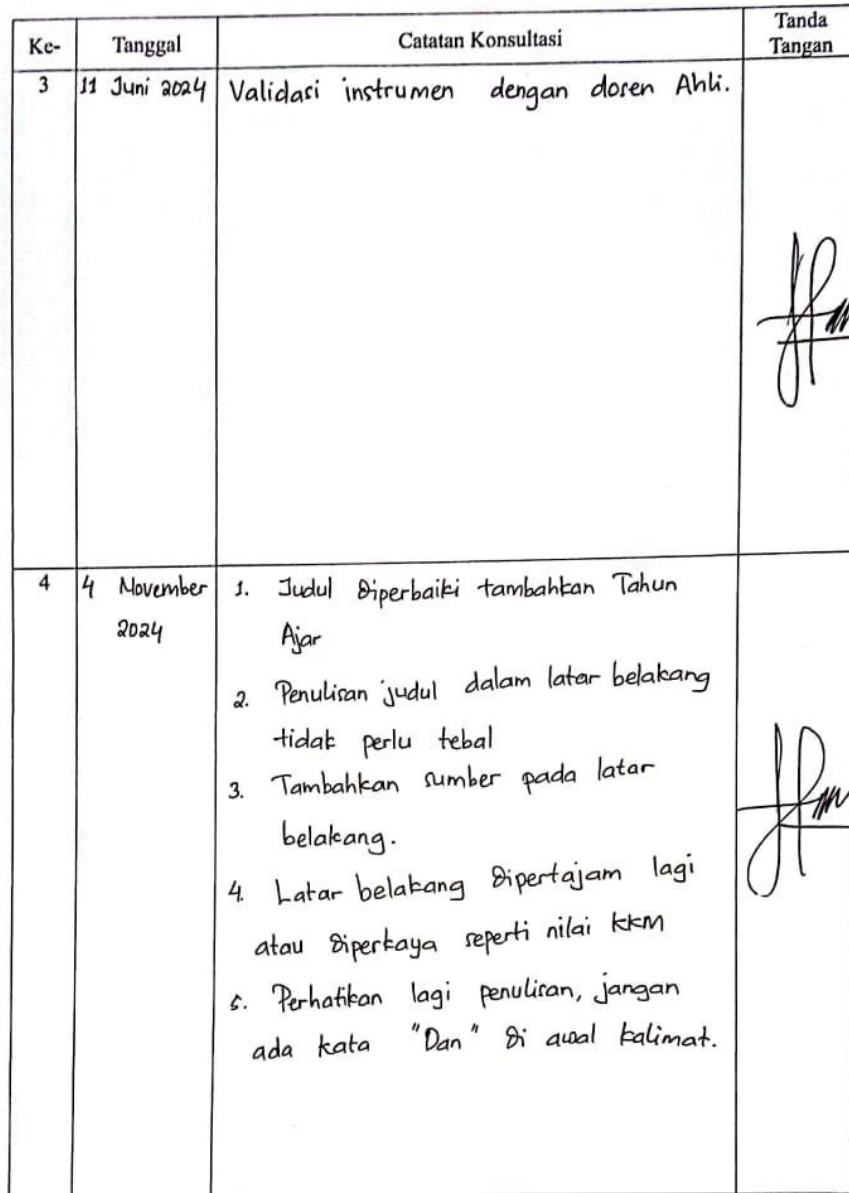 Ke- Tanggal Catatan Konsultasi Tanda
Tangan
3 11 Juni 2024 Validasi instrumen dengan dosen Ahli.
4 4 November 1. Judul diperbaiki tambahkan Tahun
2024 Ajar
2. Penulisan judul dalam latar belakang
tidak perlu tebal
3. Tambahkan sumber pada latar
belakang.
4. Latar belakang dipertajam lagi
atau diperkaya seperti nilai KKM
5. Perhatikan lagi penulisan, jangan
ada kata "Dan" di awal kalimat.